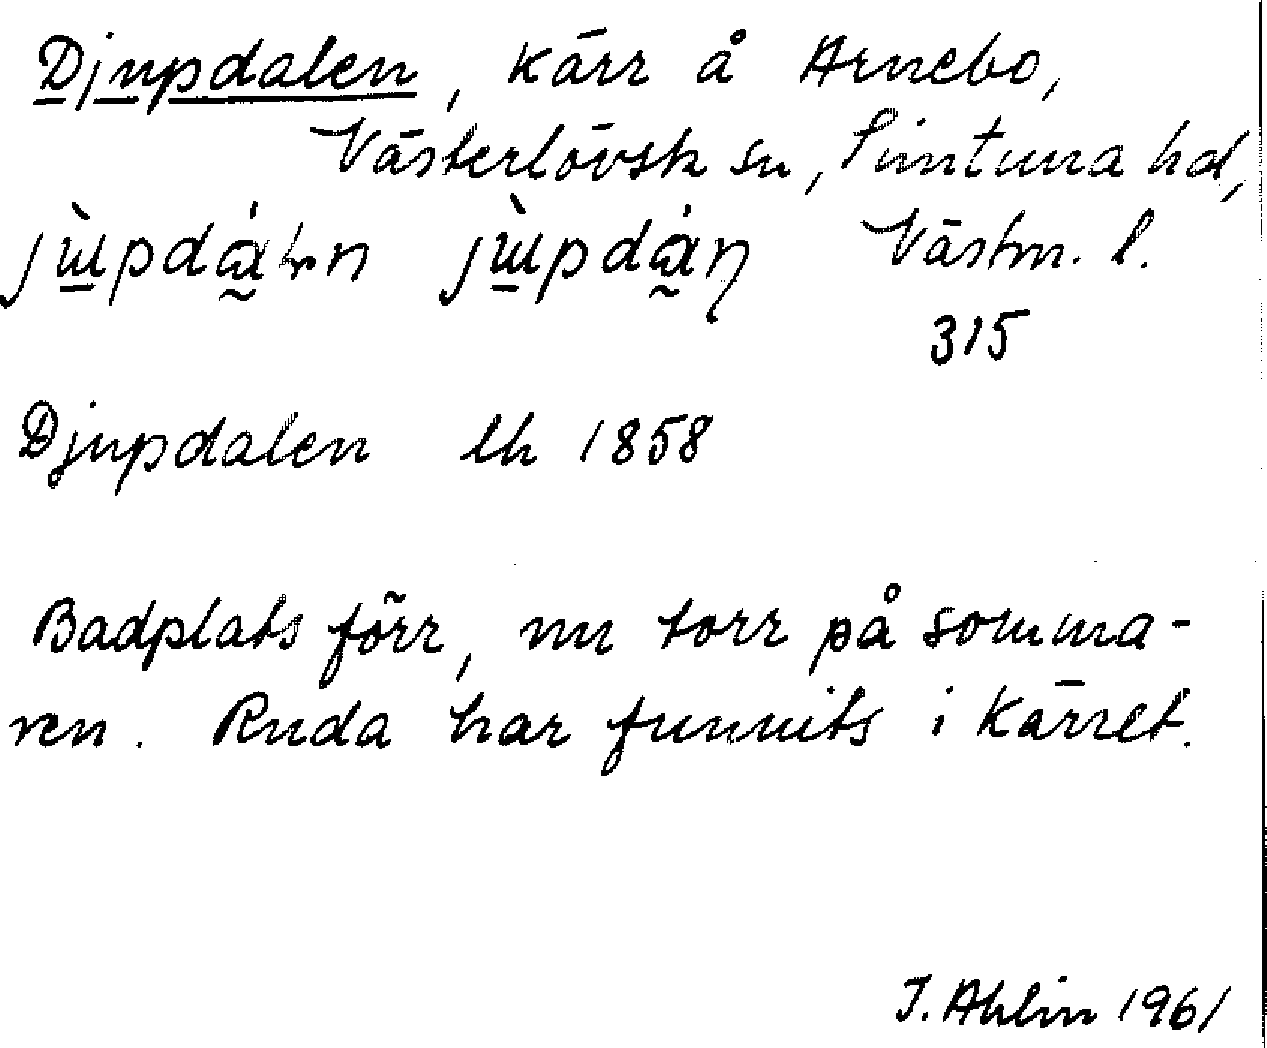 Djupdalen, kärr å Arnebo,
Västerlövsk sn, Simtuna hd,
Västm. l.
315
Djupdalen lh 1858
Badplats förr, nu torr på somma-
ren. Ruda har funnits i kärret.
J. Ahlin 1961